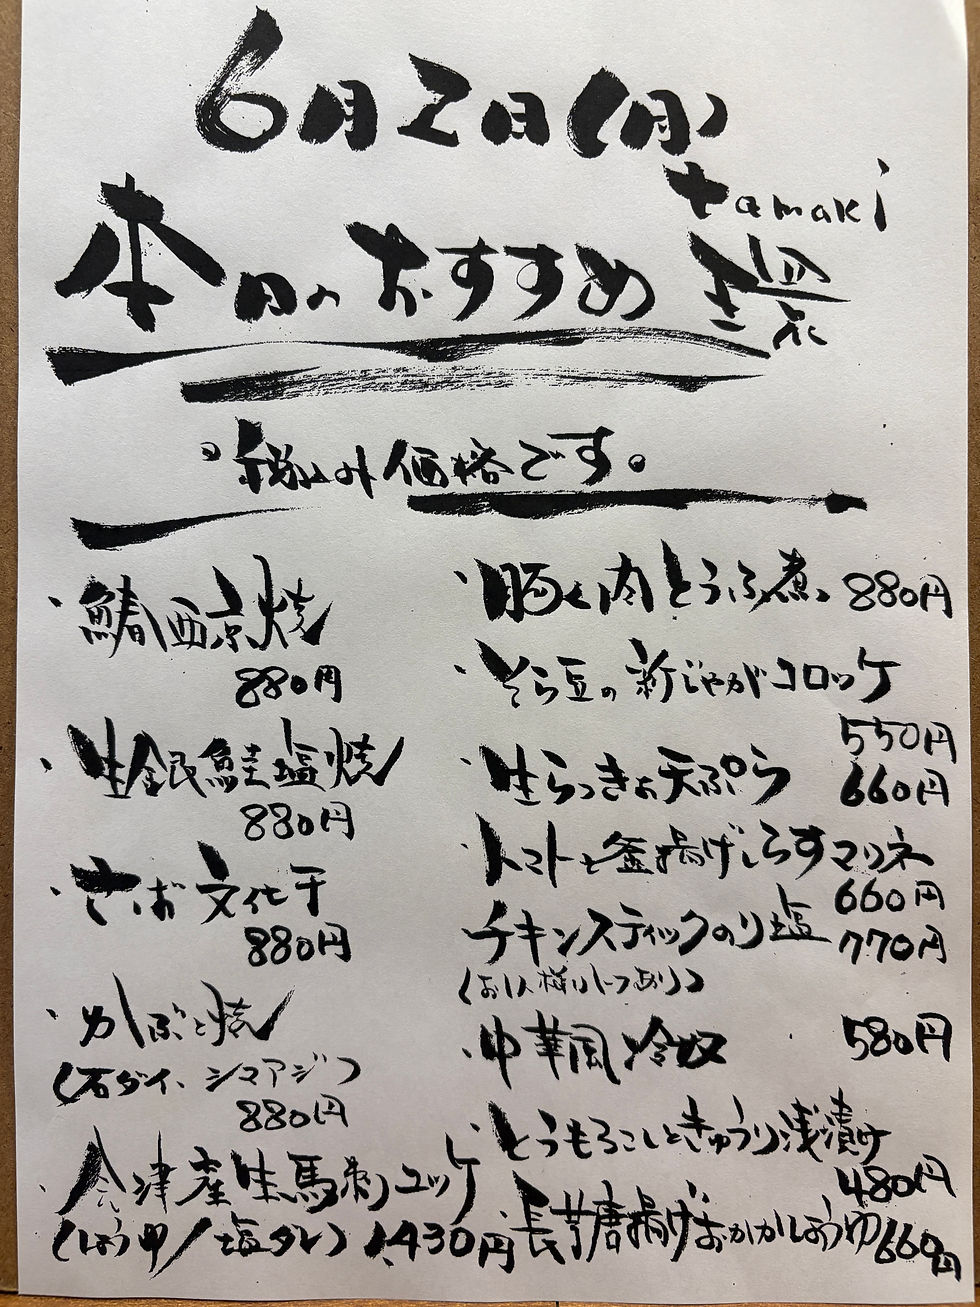 6月2日(月)
tamaki
本日のおすすめ 環
税込み価格です。
・鯖西京焼
880円
・生銀鮭塩焼
880円
・さば文化干
880円
・かぶと焼
(石ダイ、シマアジ)
880円
・会津産生馬刺ユッケ
(しょうゆ/塩ダレ) 1,430円
・豚く肉とうふ煮 880円
・そら豆の新じゃがコロッケ
550円
・生らっきょ天ぷら 660円
・トマトと釜揚げしらすマリネ
660円
チキンスティックのり塩 770円
(お1人様ハーフあり)
・中華風冷奴 580円
・とうもろこしときゅうり浅漬け
480円
・長芋唐揚げおかかしょうゆ 660円